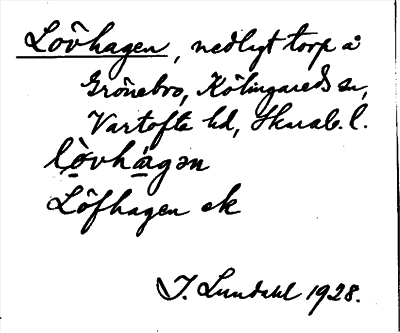 Lövhagen, nedlagt torp å
Grönebro, Kölingareds sn,
Vartofta hd, Skarab. l.
lòvhàgən
Löfhagen ek
J. Lundahl 1928.